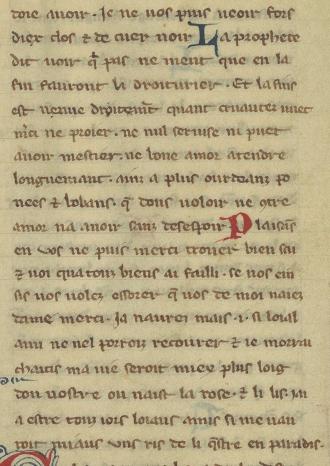 toie auoir. Je ne uos puis ueoir fors
diex clos & de cuer noir La prophete
dit uoir q̃ pas ne ment que en la
fin fauront li droiturier. Et la fins
est uenue droitem̃t quant cruautez uiet
m̃ci ne proier. ne nul seruise ni puet
auoir mestier. ne bone amor atendre
longuemant. ainz a plus
& bobans. q̃ dous uoloir ne ꝯtre
amor na auoir sanz desespoir Plaisãs
en uos ne puis merci trouer bien sai
& uoi qua touz biens ai failli. se uos ein
sis uos uolez essorer q̃ uos de moi naiez
dame merci. Ja naurez mais .i. si loial
ami ne nel porroiz recourer & ie morrai
chaitis ma uie seroit miex plus loig
dou uostre ou naist la rose. & li lis. iai
a estre touz iors loiaus amis si me uau
roit miaus uns ris de u q̃stre en paradis.